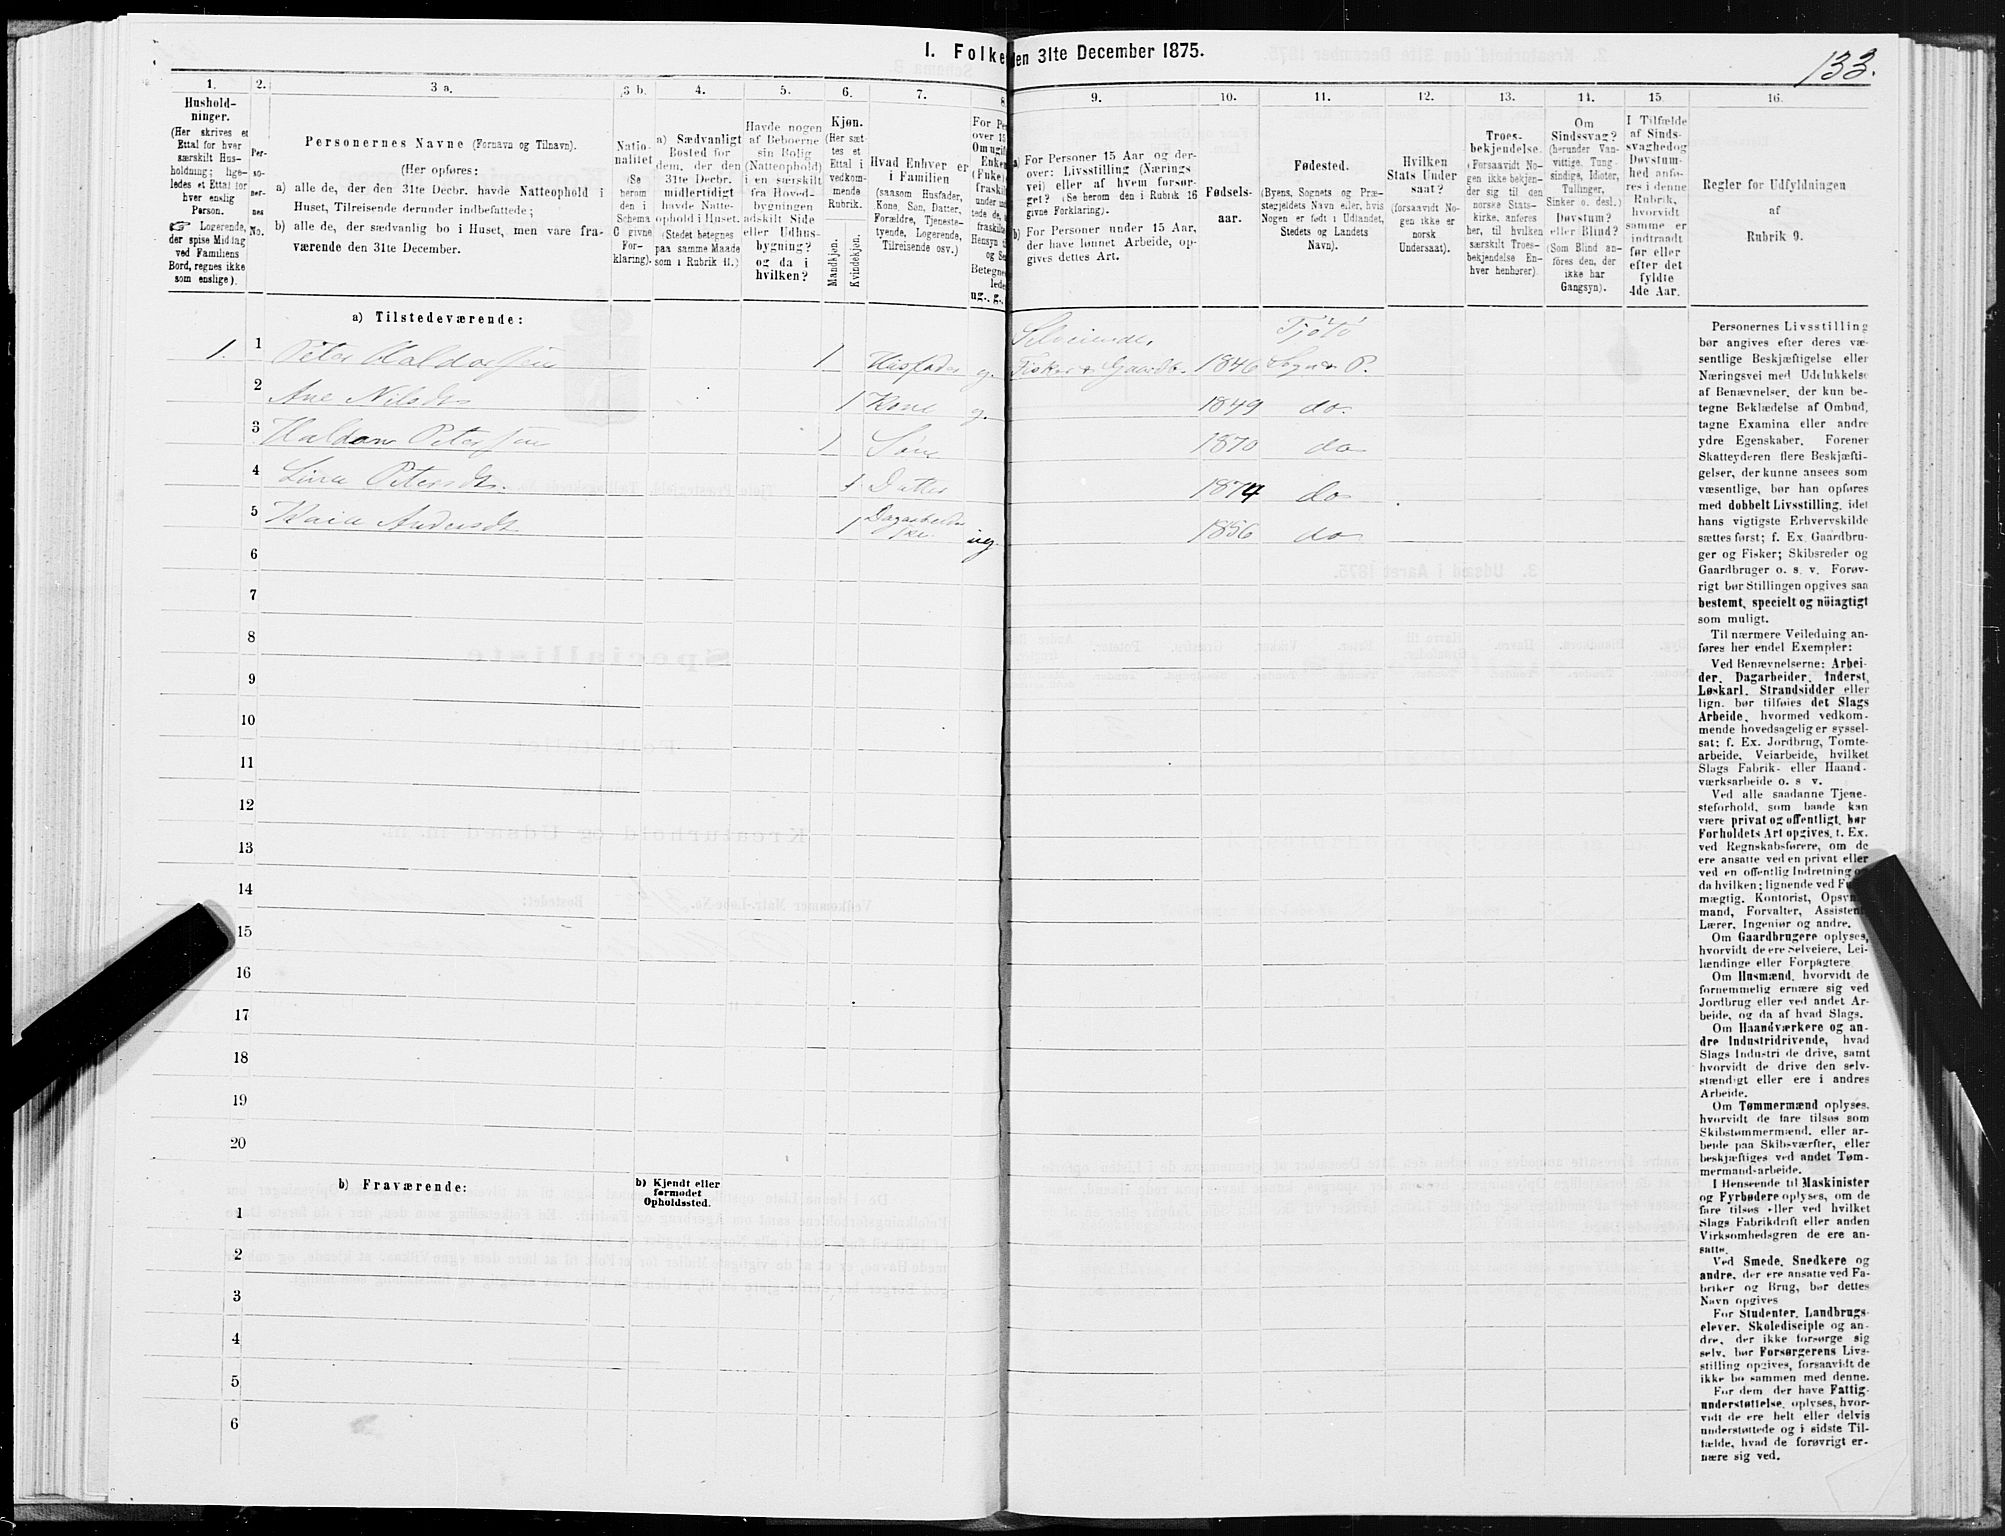 I. Folke
den 31te December 1875.
133.
1.
2.
3 a.
3 b.
4.
5.
6.
7.
8
9.
10.
11.
12.
13.
14.
15.
16.
Hushold-
ninger.
(Her skrives et
Ettal for hver
særskilt Hus-
holdning; lige-
ledes et Ettal for
hver enslig
Person.
☞ Logerende,
der spise Middag
ved Familiens
Bord, regnes ikke
som enslige).
Per-
so-
ner-
nes
No.
Personernes Navne (Fornavn og Tilnavn).
(Her opføres:
a) alle de, der den 31te Decbr. havde Natteophold i
Huset, Tilreisende derunder indbefattede;
b) alle de, der sædvanlig bo i Huset, men vare fra-
værende den 31te December.
Natio-
nalitet
(Se
herom
den i
Schema
C givne
For-
klaring).
a) Sædvanligt
Bosted for
dem, der den
31te Decbr.
midlertidigt
havde Natte-
ophold i Huset.
(Stedet betegnes
paa samme Maade
som i Rubrik 11.)
Havde nogen
af Beboerne
sin Bolig
(Natteophold)
i en særskilt
fra Hoved-
bygningen
adskilt Side
eller Udhus-
bygning?
og da i
hvilken?
Kjøn.
(Her sæt-
tes et
Ettal i
vedkom-
mende
Rubrik.
Mandkjøn.
Kvindekjøn.
Hvad Enhver er
i Familien
(saasom Husfader,
Kone, Søn, Datter,
Forældre, Tjeneste-
tyende, Logerende,
Tilreisende osv.)
For Pe
over 15
Om ugif
Enke
(Fuke)
fraskilt
under in
tede de,
fraskilt
Hensyn
og Se
Betegne
lede
ug., g.,
a) For Personer 15 Aar og der-
over: Livsstilling (Nærings
vei) eller af hvem forsør-
get? (Se herom den i Rubrik 16
givne Forklaring).
b) For Personer under 15 Aar,
der have lønnet Arbeide, op-
gives dettes Art.
Fødsels-
aar.
Fødested.
(Byens, Sognets og Præ-
stegjeldets Navn eller, hvis
Nogen er født i Udlandet,
Stedets og Landets
Navn).
Hvilken
Stats Under
saat?
(forsaavidt No-
gen ikke er
norsk
Undersaat).
Troes-
bekjendelse.
(Forsaavidt No-
gen ikke bekjen-
der sig til den
norske Stats-
kirke, anføres
her, til hvilken
særskilt Troes-
bekjendelse En-
hver henhører).
Om
Sindssvag?
(herunder Van-
vittige, Tung-
sindige, Idioter,
Tullinger,
Sinker o. desl.)
Døvstum?
eller Blind?
(Som Blind an-
føres den, der
ikke har
Gangsyn).
I Tilfælde
af Sinds-
svaghed og
Døvstum-
hed anfø-
res i denne
Rubrik,
hvorvidt
samme er
indtraadt
før eller
efter det
fyldte
4de Aar.
Regler for Udfyldningen
af
Rubrik 9.
a) Tilstedeværende:
1. 1 Peter Haldorsen 1 Husfader g. Selveiende, Fisker & Gaardb. 1846 Tjøtø Sogn & P.
2 Ane Nilsdt 1 Kone g. 1849 do.
3 Haldan Petersen 1 Søn 1870 do
4 Lina Petersdt. 1 Datter 1874 do
5 Andersdt 1 ug. 1856 do
6
7
8
9
10
11
12
13
14
15
16
17
18
19
20
b) Fraværende:
b) Kjendt eller
formodet
Opholdssted.
1
2
3
4
5
6
Personernes Livsstilling
bør angives efter deres væ-
sentlige Beskjæftigelse eller
Næringsvei med Udelukkelse
af Benævnelser, der kun be-
tegne Beklædelse af Ombud,
tagne Examina eller andre
ydre Egenskaber. Forener
Skatteyderen flere Beskjæfti-
gelser, der kunne ansees som
væsentlige, bør han opføres
med dobbelt Livsstilling, idet
hans vigtigste Erhvervskilde
sættes først; f. Ex. Gaardbru-
ger og Fisker; Skibsreder og
Gaardbruger o. s. v. Forøv-
rigt bør Stillingen opgives saa
bestemt, specielt og nöiagtigt
som muligt.
Til nærmere Veiledning an-
føres her endel Exempler:
Ved Benævnelserne: Arbei-
der, Dagarbeider, Inderst,
Løskarl, Strandsidder eller
lign. bør tilføies det Slags
Arbeide, hvormed vedkom-
mende hovedsagelig er syssel-
sat; f. Ex. Jordbrug, Tomte-
arbeide, Veiarbeide, hvilket
Slags Fabrik- eller Haand-
værksarbeide o. s v.
Ved alle saadanne Tjene-
steforhold, som baade kan
være privat og offentligt, bør
Forholdets Art opgives, t. Ex.
ved Regnskabsførere, om de
ere ansatte ved en privat eller
ved en offentlig Indretning
da hvilken; lignende ved
mægtig, Kontorist, Opsyns-
mand, Forvalter, Assistent,
Lærer, Ingeniør og andre.
Om Gaardbrugere oplyses,
hvorvidt de ere Selveiere, Lei-
lændinge eller Forpagtere
Om Husmænd, hvorvidt de
fornemmelig ernære sig ved
Jordbrug eller ved andet Ar-
beide, og da af hvad Slags.
Om Haandværkere og an-
dre Industridrivende, hvad
Slags Industri de drive, samt
hvorvidt de drive den selv-
stændigt eller ere i andres
Arbeide.
Om Tømmermænd oplyses,
hvorvidt de fare tilsøs som
Skibstømmermænd, eller ar-
beide paa Skibsværfter, eller
beskjæftiges ved andet Tøm-
mermandsarbeide.
I Henseende til Maskinister
og Fyrbødere oplyses, om de
fare tilsøs eller ved hvilket
Slags Fabrikdrift eller anden
Virksomhedsgren de ere an-
satte.
Ved Smede, Snedkere og
andre, der ere ansatte ved Fa-
briker og Brug, bør dettes
Navn opgives
For Studenter, Landbrugs-
elever, Skoledisciple og an-
dre, der ikke forsørge sig
selv, bør Forsørgerens Livs-
stilling opgives, forsaavidt de
ikke bo sammen med denne.
For dem, der have Fattig-
understøttelse, oplyses, hvor-
vidt de ere helt eller delvis
understøttede og i sidste Til-
fælde, hvad de forøvrigt er-
nære sig ved.